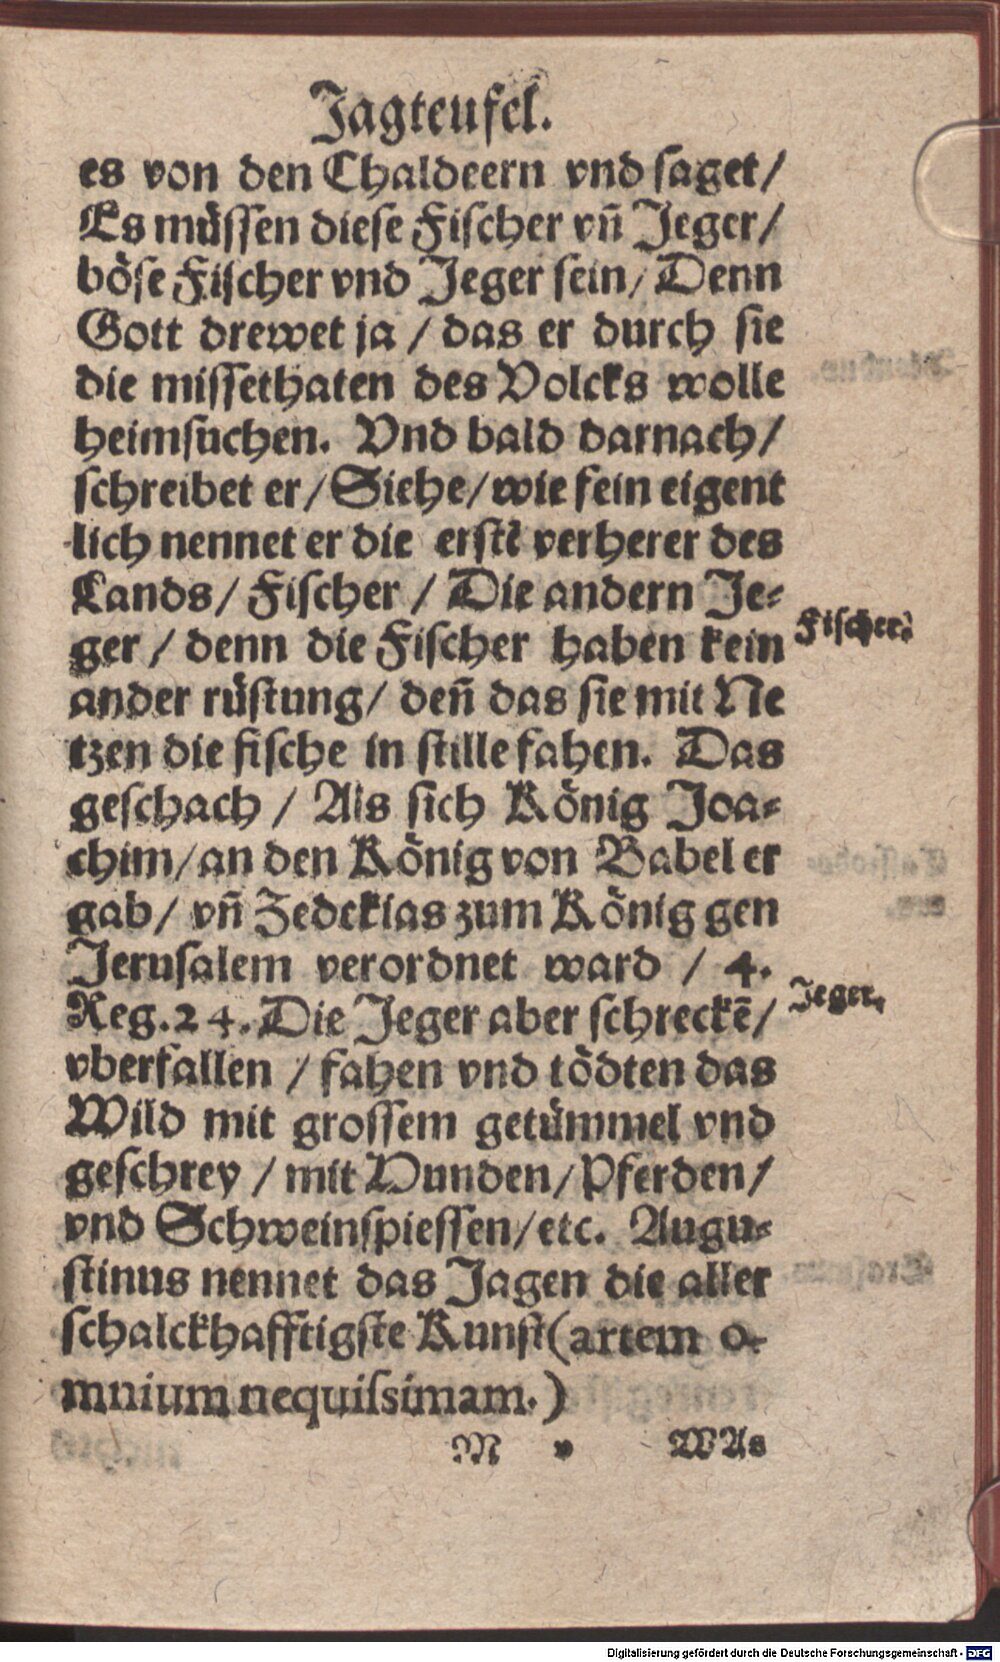 Jagteufel.
es von den Chaldeern vnd saget/
Es müssen diese Fischer vn̄ Jeger/
böse Fischer vnd Jeger sein/ Denn
Gott drewet ja / das er durch sie
die missethaten des Volcks wolle
heimsuchen. Vnd bald darnach/
schreibet er/ Siehe/ wie fein eigent
lich nennet er die erstē verherer des
Lands/ Fischer / Die andern Je-
ger / denn die Fischer haben kein
Fischer.
ander rüstung/ den̄ das sie mit Ne
tzen die fische in stille fahen. Das
geschach / Als sich König Joa-
chim/ an den König von Babel er
gab/ vn̄ Zedekias zum König gen
Jerusalem verordnet ward / 4.
Reg. 24. Die Jeger aber schreckē/
Jeger.
vberfallen / fahen vnd tödten das
Wild mit grossem getümmel vnd
geschrey / mit Hunden/ Pferden/
vnd Schweinspiessen/ etc. Augu-
stinus nennet das Jagen die aller
schalckhafftigste Kunst (artem o-
mnium nequissimam.)
M v WAs
Digitalisierung gefördert durch die Deutsche Forschungsgemeinschaft - DFG